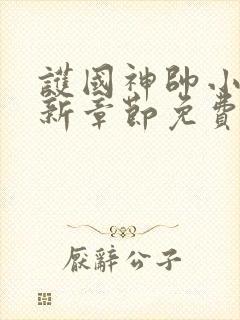 護國神帥小
新章節免費
厭辭公子